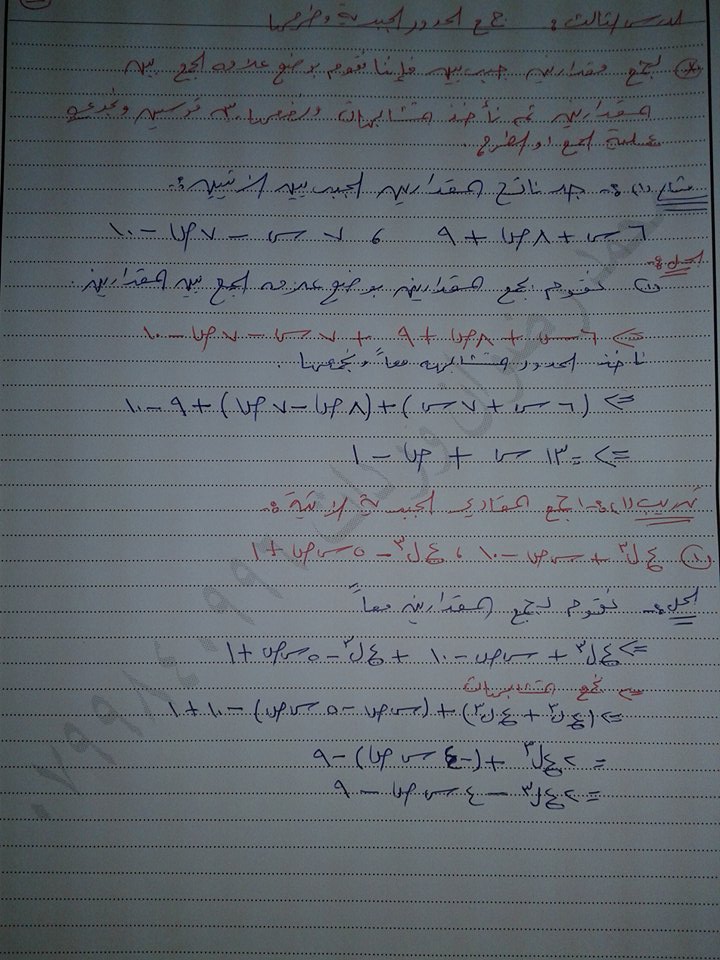 الدرس الثالث: جمع الحدود الجبرية وطرحها
* لجمع مقدارين جبريين فإننا نقوم بوضع علامة الجمع بين
المقدارين ثم نأخذ المتشابهات ونضعها بين قوسين ونجري
عملية الجمع او الطرح.
مثال (١): جد ناتج المقدارين الجبريين الاتيين:
٦س + ٨ص + ٩ ، ٧س - ٧ص - ١٠
الحل:
(١) نقوم بجمع المقدارين بوضع علامه الجمع بين المقدارين.
<= ٦س + ٨ص + ٩ + ٧س - ٧ص - ١٠
نأخذ الحدود المتشابهه معاً ونجمعها.
<= (٦س + ٧س) + (٨ص - ٧ص) + ٩ - ١٠
<= = ١٣س + ص - ١
تدريب (١): اجمع المقادير الجبرية الاتية:
(١) ع ل³ + س ص - ١٠ ، ع ل³ - ٥ س ص + ١
الحل: نقوم بجمع المقدارين معاً
<= ع ل³ + س ص - ١٠ + ع ل³ - ٥ س ص + ١
نجمع المتشابهات
<= (ع ل³ + ع ل³) + (س ص - ٥ س ص) - ١٠ + ١
= ٢ع ل³ + (-٤ س ص) - ٩
= ٢ع ل³ - ٤ س ص - ٩